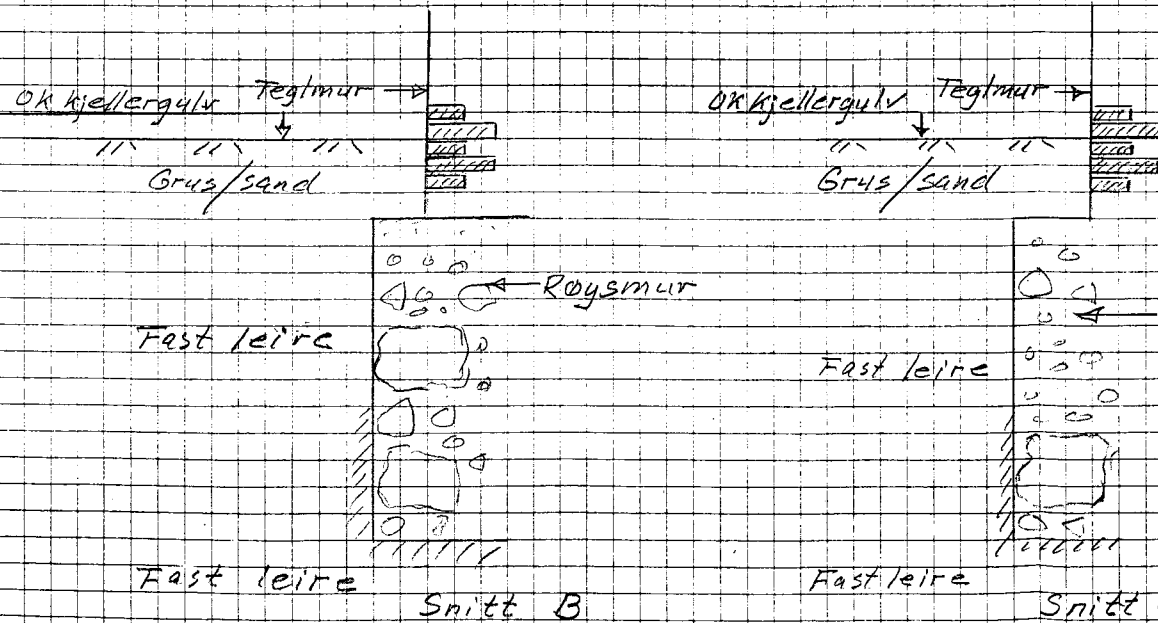 OK kjellergulv
Teglmur
Grus/sand
Røysmur
Fast leire
Fast leire
Snitt B
OK kjellergulv
Teglmur
Grus/sand
Fast leire
Fast leire
Snitt